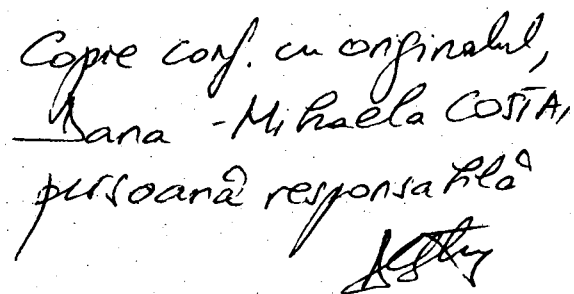 Copie conf. cu originalul,
Dana - Mihaela COSTA,
persoană responsabilă